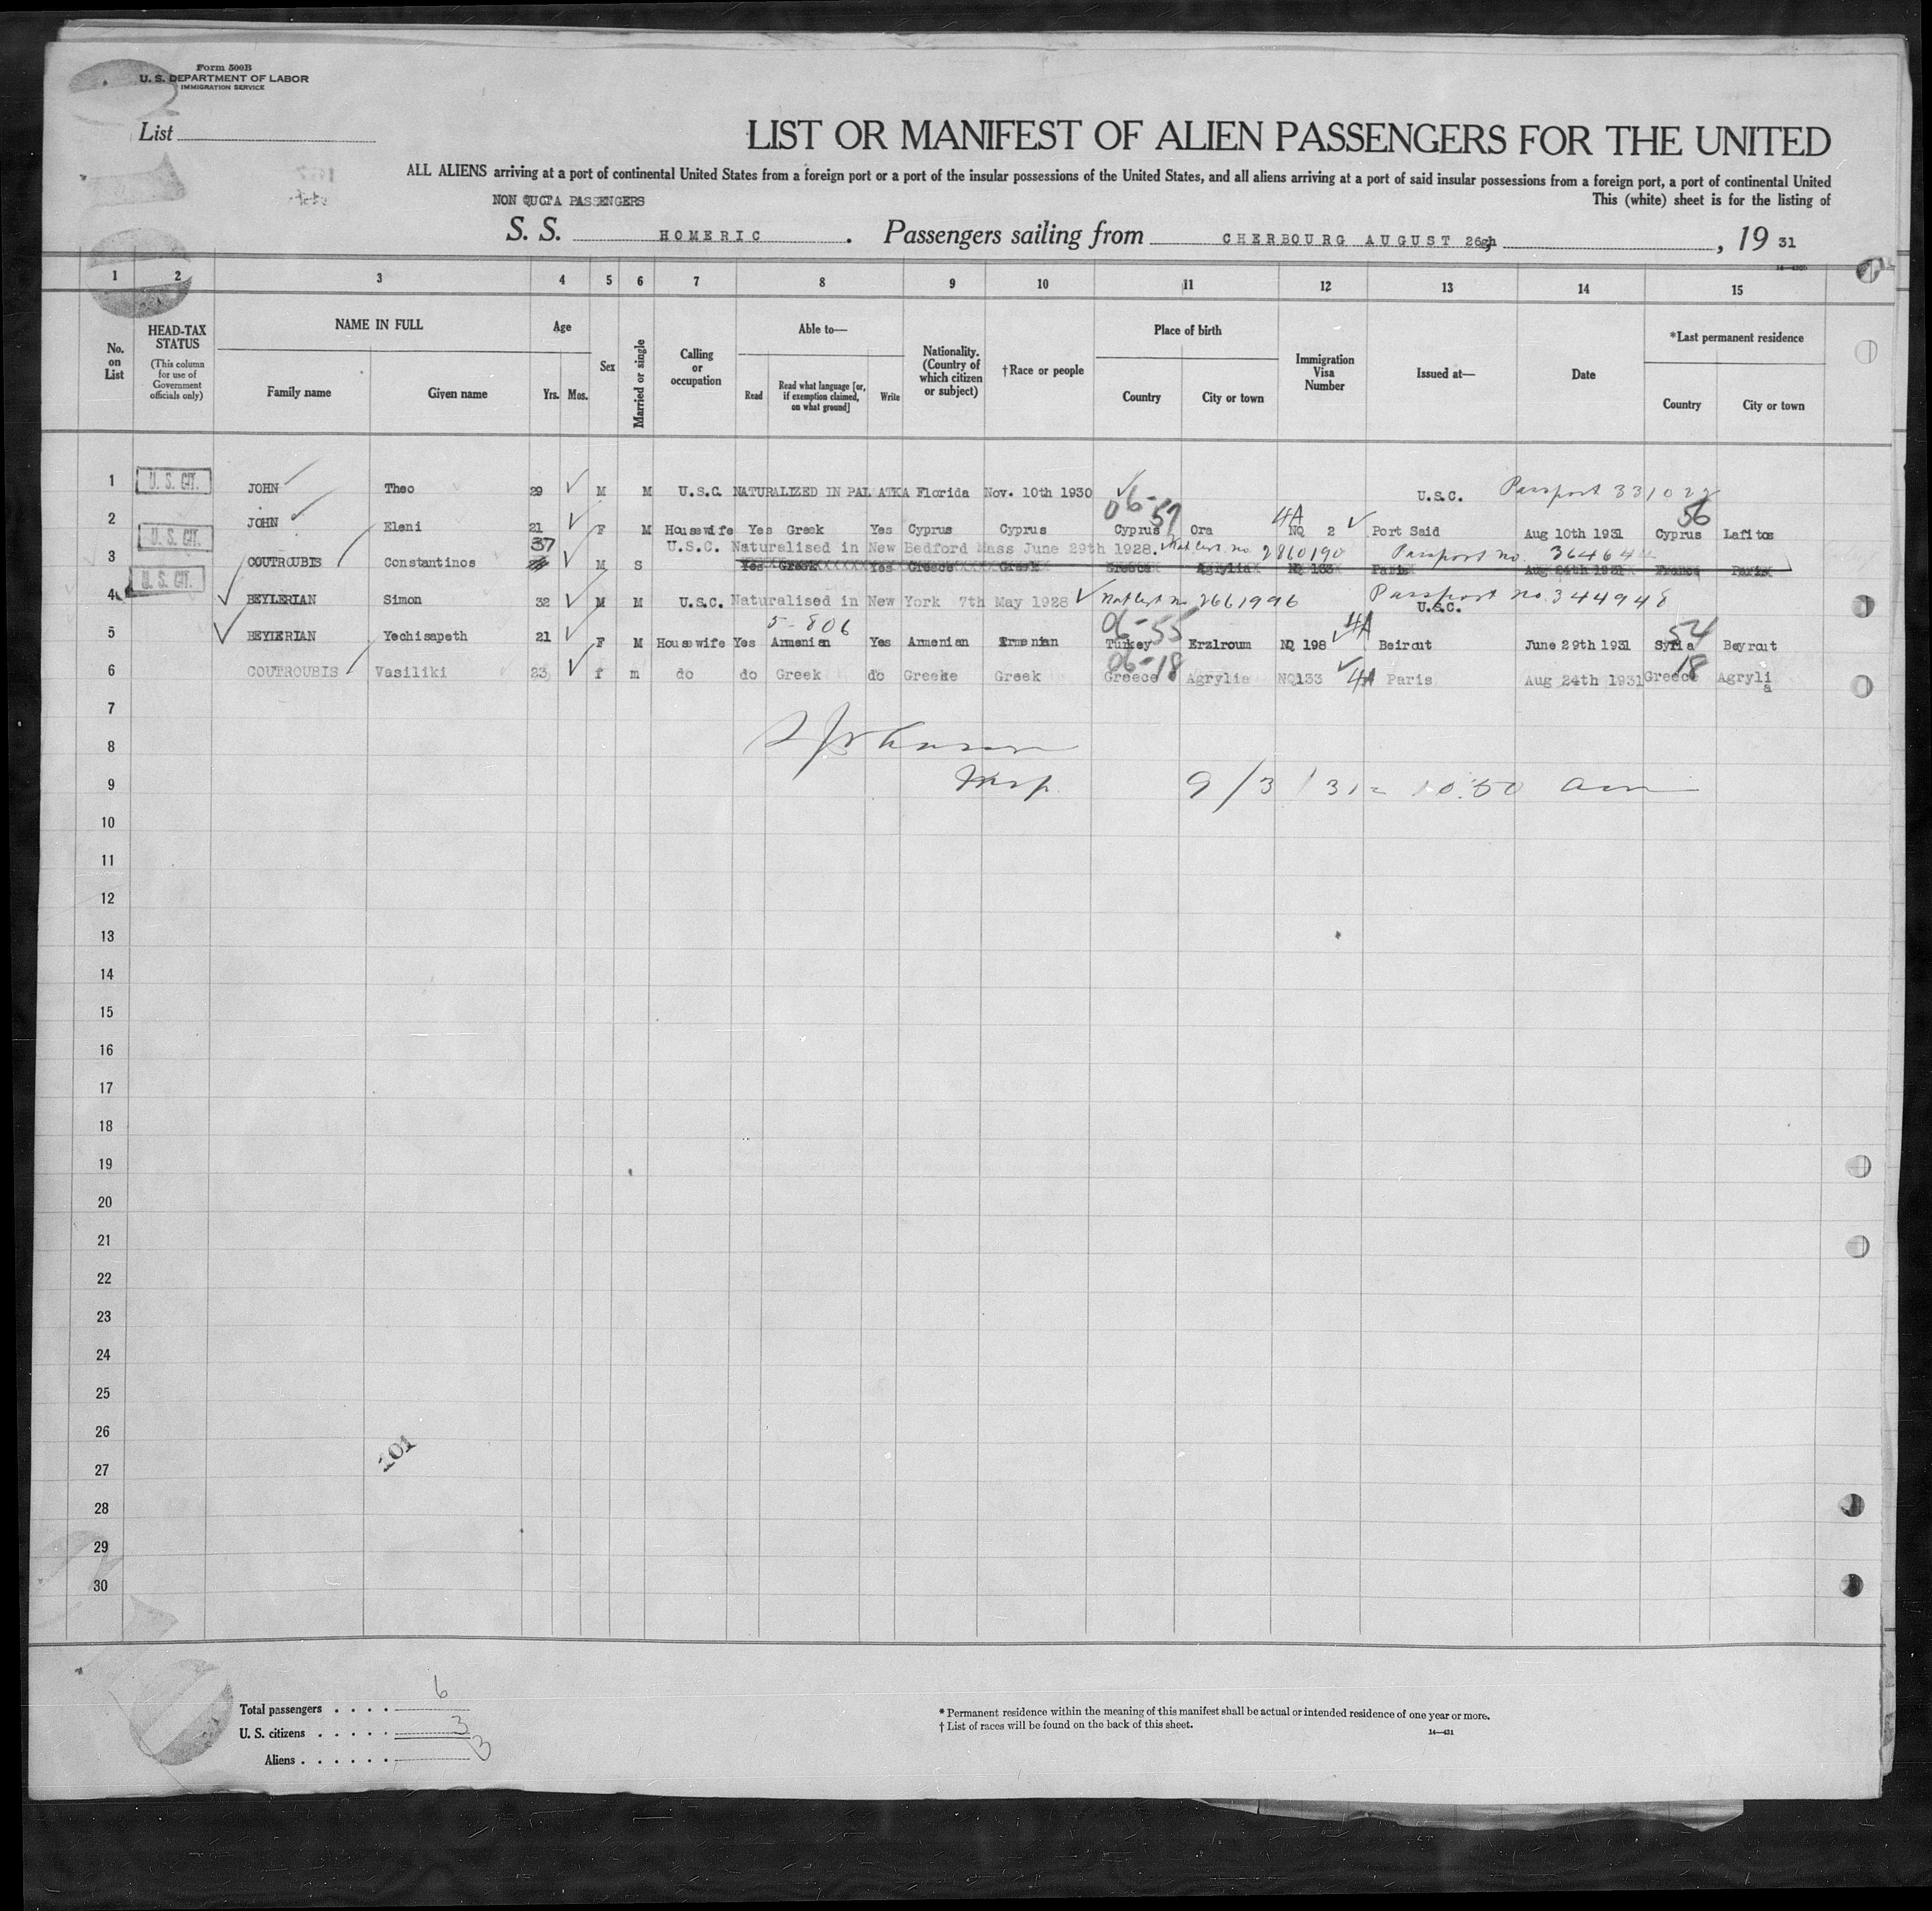 Form 500B
U. S. DEPARTMENT OF LABOR
IMMIGRATION SERVICE
List
LIST OR MANIFEST OF ALIEN PASSENGERS FOR THE UNITED
ALL ALIENS arriving at a port of continental United States from a foreign port or a port of the insular possessions of the United States, and all aliens arriving at a port of said insular possessions from a foreign port, a port of continental United
NON QUOTA PASSENGERS This (white) sheet is for the listing of
S. S. HOMERIC. Passengers sailing from CHERBOURG AUGUST 26th, 19 31
1 2 3 4 5 6 7 8 9 10 11 12 13 14 15
No. on List
HEAD-TAX STATUS
(This column for use of Government officials only)
NAME IN FULL
Family name Given name
Age
Yrs. Mos.
Sex
Married or single
Calling or occupation
Able to—
Read Read what language [or, if exemption claimed, on what ground] Write
Nationality. (Country of which citizen or subject)
†Race or people
Place of birth
Country City or town
Immigration Visa Number
Issued at—
Date
*Last permanent residence
Country City or town
1 U. S. CIT. JOHN Theo 29 M M U.S.C. NATURALIZED IN PALATKA Florida Nov. 10th 1930 U.S.C. Passport 331022
06-57 4A 56
2 JOHN Eleni 21 F M Housewife Yes Greek Yes Cyprus Cyprus Cyprus Ora NQ 2 Port Said Aug 10th 1931 Cyprus Lafitos
U. S. CIT. 37 U.S.C. Naturalised in New Bedford Mass June 29th 1928. Nat Cert. no. 2860190 Passport no. 364644
3 COUTROUBIS Constantinos M S Yes Greek Yes Greece Greek Greece Agrylia NQ 133 Paris Aug 24th 1931 France Paris
U. S. CIT.
4 BEYLERIAN Simon 32 M M U.S.C. Naturalised in New York 7th May 1928 Nat Cert no 2661996 Passport no. 344948
U.S.C.
5-806 06-55 4A 54
5 BEYLERIAN Yechisapeth 21 F M Housewife Yes Armenian Yes Armenian Armenian Turkey Erzlroum NQ 198 Beirout June 29th 1931 Syria Beyrout
06-18 18
6 COUTROUBIS Vasiliki 23 f m do do Greek do Greeke Greek Greece Agrylia NQ133 4A Paris Aug 24th 1931 Greece Agrylia
7
8
9 Insp. 9/3/31 = 10:50 am
10
11
12
13
14
15
16
17
18
19
20
21
22
23
24
25
26
101
27
28
29
30
Total passengers . . . . 6
U. S. citizens . . . . . 3
Aliens . . . . . . 3
* Permanent residence within the meaning of this manifest shall be actual or intended residence of one year or more.
† List of races will be found on the back of this sheet.
14—431